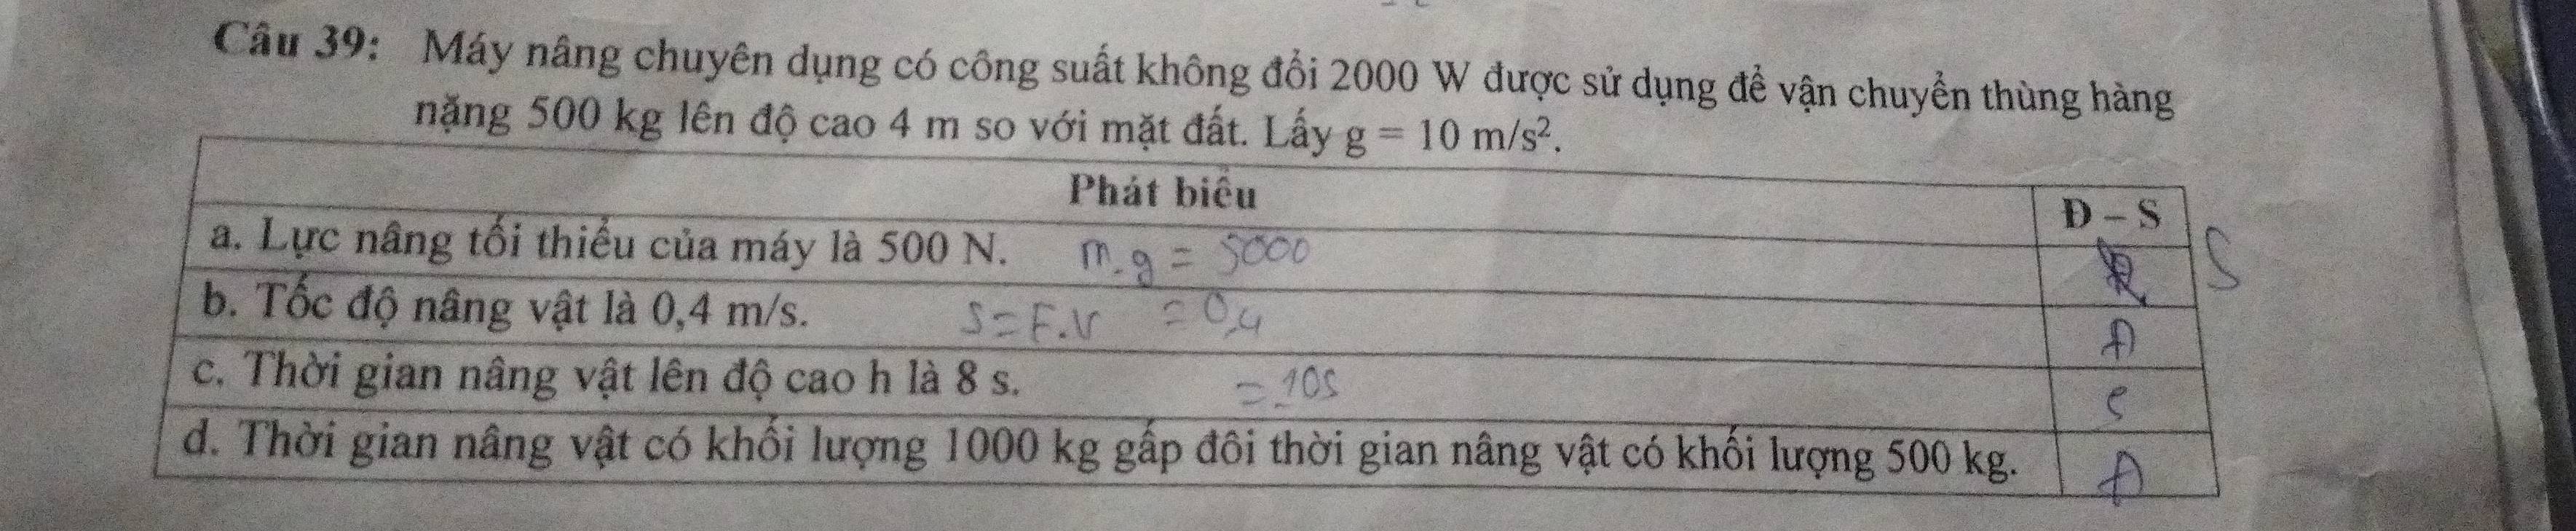 Câu 39: Máy nâng chuyên dụng có công suất không đổi 2000 W được sử dụng để vận chuyển thùng hàng
nặng 500 kg lên độ cao 4 m so với mặt đất. Lấy g = 10 m/s².
Phát biểu Đ – S
a. Lực nâng tối thiểu của máy là 500 N. m.g = 5000 S
b. Tốc độ nâng vật là 0,4 m/s. S = F.V = 0,4 Đ
c. Thời gian nâng vật lên độ cao h là 8 s. = 10s S
d. Thời gian nâng vật có khối lượng 1000 kg gấp đôi thời gian nâng vật có khối lượng 500 kg. Đ